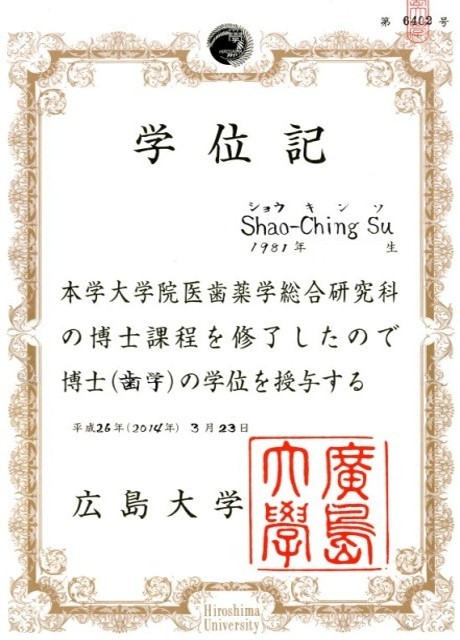 第 6402 号
学位記
ショウ キン ソ
Shao-Ching Su
1981年 生
本学大学院医歯薬学総合研究科
の博士課程を修了したので
博士(歯学)の学位を授与する
平成26年(2014年) 3月23日
広島大学
廣島
大學
Hiroshima
University